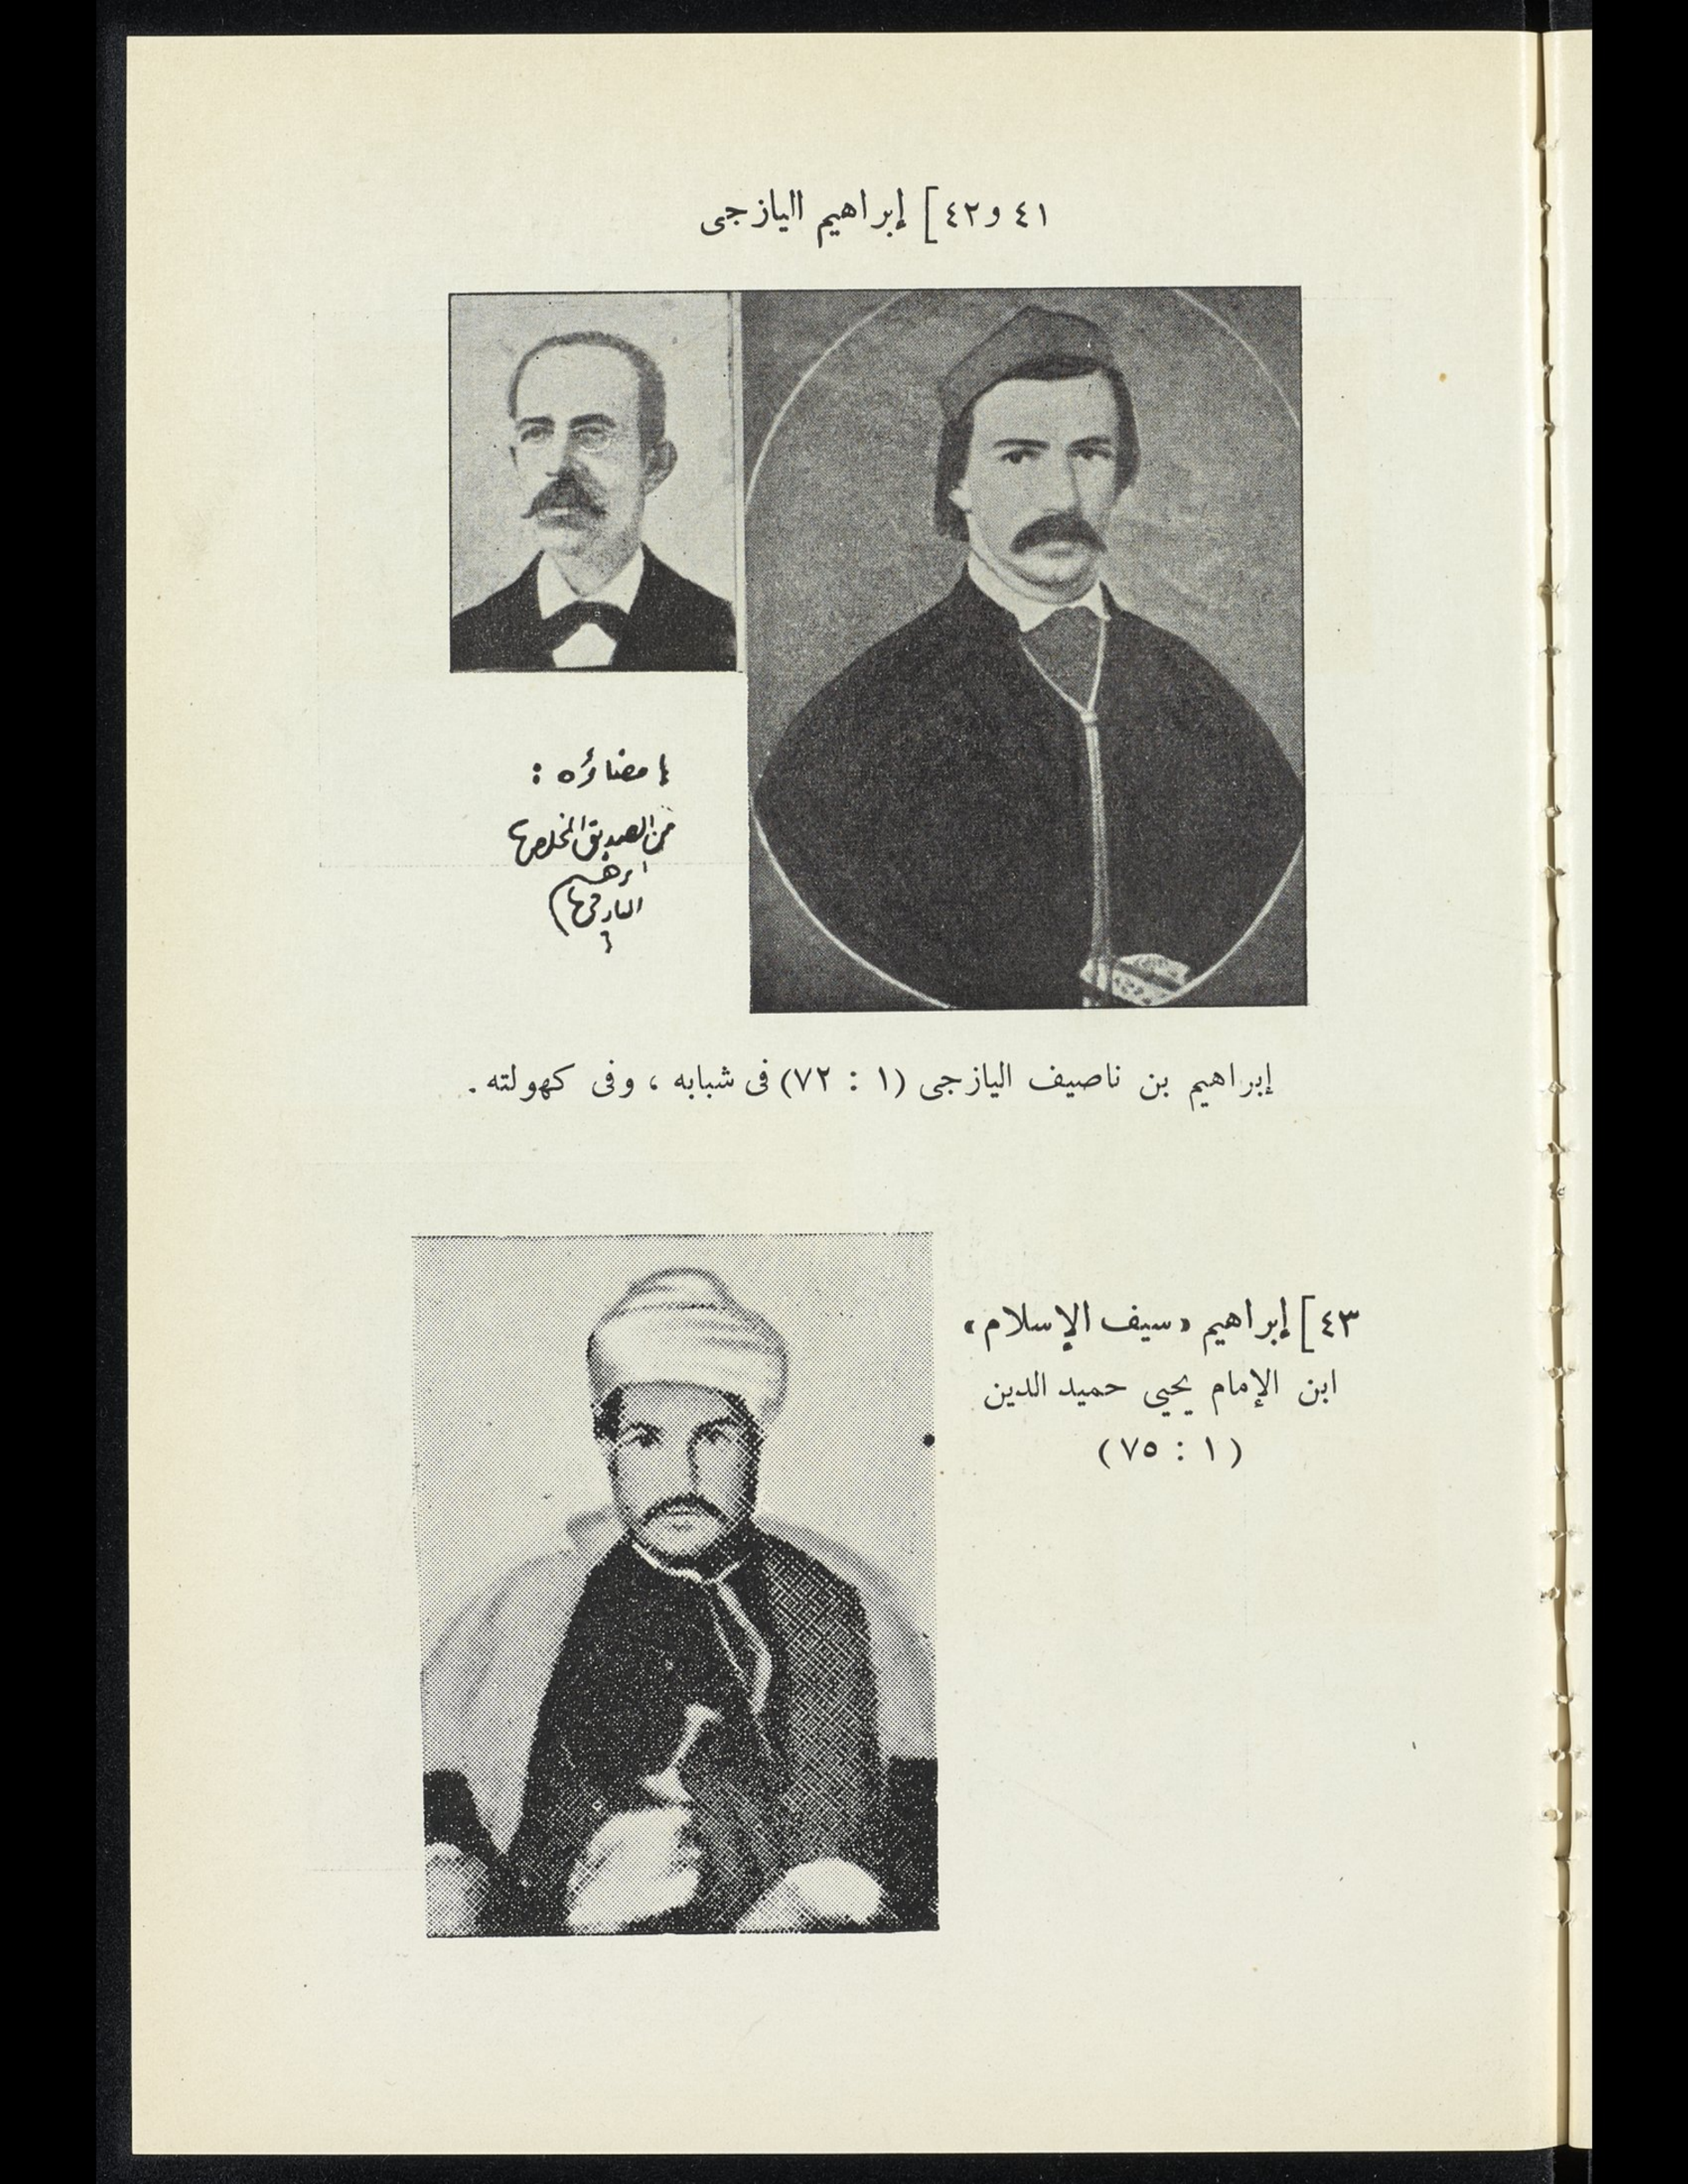 ٤١ و٤٢] إبراهيم اليازجى
إمضاؤه :
من الصديق المخلص
ابرهيم
اليازجي
إبراهيم بن ناصيف اليازجى (١ : ٧٢) فى شبابه ، وفى كهولته .
٤٣] إبراهيم «سيف الإسلام»
ابن الإمام يحيى حميد الدين
(١ : ٧٥)